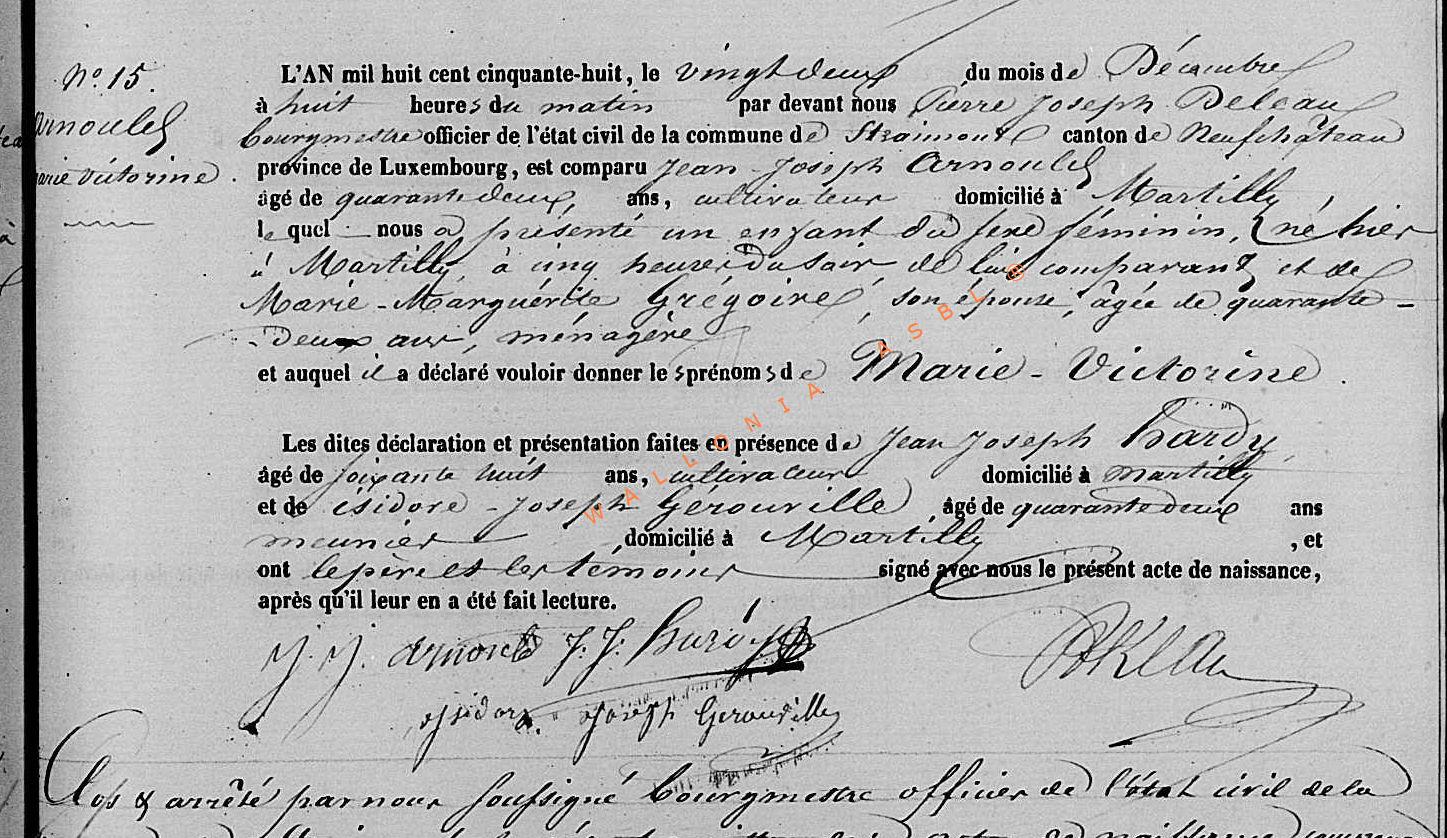 N° 15.
Arnould
Marie Victorine.
L'AN mil huit cent cinquante-huit, le vingt deux du mois de Décembre
à huit heures du matin par devant nous Pierre Joseph Deleau
bourgmestre officier de l'état civil de la commune de Straimont canton de Neufchâteau
province de Luxembourg, est comparu Jean Joseph Arnould
âgé de quarante deux, ans, cultivateur domicilié à Martilly,
lequel nous a présenté un enfant du sexe féminin, né hier
à Martilly, à cinq heures du soir, de lui comparant et de
Marie-Marguérite Grégoire, son épouse, âgée de quarante-
-deux ans, ménagère
et auquel il a déclaré vouloir donner les prénoms de Marie-Victorine.
Les dites déclaration et présentation faites en présence de Jean Joseph hardy,
âgé de soixante huit ans, cultivateur domicilié à martilly
et de isidore-Joseph Gérouville, âgé de quarante deux ans
meunier, domicilié à Martilly, et
ont le père et les témoins signé avec nous le présent acte de naissance,
après qu'il leur en a été fait lecture.
J. J. Arnould J. J. hardy
isidore Joseph Gerouville
Clos & arrêté par nous soussigné bourgmestre officier de l'état civil de la
WALLONIA ASBL ©